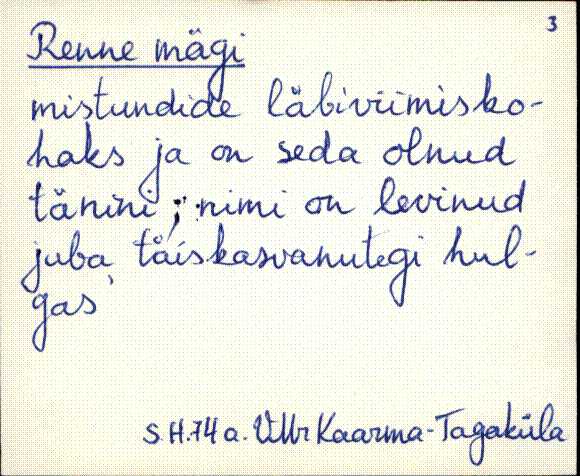 3
Renne mägi
mistundide läbiviimisko-
haks ja on seda olnud
tänini; nimi on levinud
juba täiskasvanutegi hul-
gas'
S.H.74 a. VMr Kaarma-Tagaküla